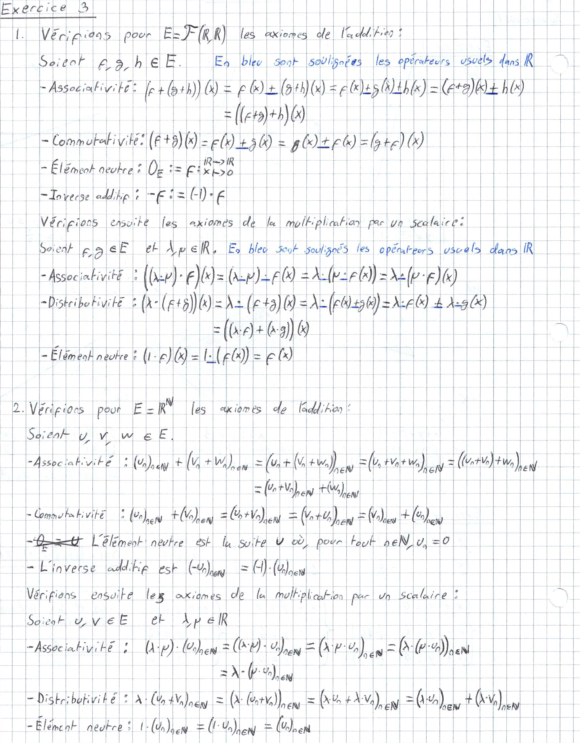 Exercice 3
1. Vérifions pour E=F(R,R) les axiomes de l'addition:
Soient f,g,h ∈ E. En bleu sont soulignées les opérateurs usuels dans R
- Associativité: (f+(g+h))(x) = f(x)+(g+h)(x) = f(x)+g(x)+h(x) = (f+g)(x)+h(x)
= ((f+g)+h)(x)
- Commutativité: (f+g)(x) = f(x)+g(x) = g(x)+f(x) = (g+f)(x)
- Élément neutre: 0_E := f: R→R x↦0
- Inverse additif: -f := (-1)·f
Vérifions ensuite les axiomes de la multiplication par un scalaire:
Soient f,g ∈ E et λ,μ ∈ R. En bleu sont soulignés les opérateurs usuels dans R
- Associativité: ((λ·μ)·f)(x) = (λ·μ)·f(x) = λ·(μ·f(x)) = λ·(μ·f)(x)
- Distributivité: (λ·(f+g))(x) = λ·(f+g)(x) = λ·(f(x)+g(x)) = λ·f(x) + λ·g(x)
= ((λ·f)+(λ·g))(x)
- Élément neutre: (1·f)(x) = 1·(f(x)) = f(x)
2. Vérifions pour E = R^N les axiomes de l'addition:
Soient u, v, w ∈ E.
- Associativité: (u_n)_{n∈N} + (v_n + w_n)_{n∈N} = (u_n + (v_n + w_n))_{n∈N} = (u_n + v_n + w_n)_{n∈N} = ((u_n + v_n) + w_n)_{n∈N}
= (u_n + v_n)_{n∈N} + (w_n)_{n∈N}
- Commutativité: (u_n)_{n∈N} + (v_n)_{n∈N} = (u_n + v_n)_{n∈N} = (v_n + u_n)_{n∈N} = (v_n)_{n∈N} + (u_n)_{n∈N}
- L'élément neutre est la suite u où, pour tout n∈N, u_n = 0
- L'inverse additif est (-u_n)_{n∈N} = (-1)·(u_n)_{n∈N}
Vérifions ensuite les axiomes de la multiplication par un scalaire:
Soient u, v ∈ E et λ, μ ∈ R
- Associativité: (λ·μ)·(u_n)_{n∈N} = ((λ·μ)·u_n)_{n∈N} = (λ·μ·u_n)_{n∈N} = (λ·(μ·u_n))_{n∈N}
= λ·(μ·u_n)_{n∈N}
- Distributivité: λ·(u_n + v_n)_{n∈N} = (λ·(u_n + v_n))_{n∈N} = (λ·u_n + λ·v_n)_{n∈N} = (λ·u_n)_{n∈N} + (λ·v_n)_{n∈N}
- Élément neutre: 1·(u_n)_{n∈N} = (1·u_n)_{n∈N} = (u_n)_{n∈N}